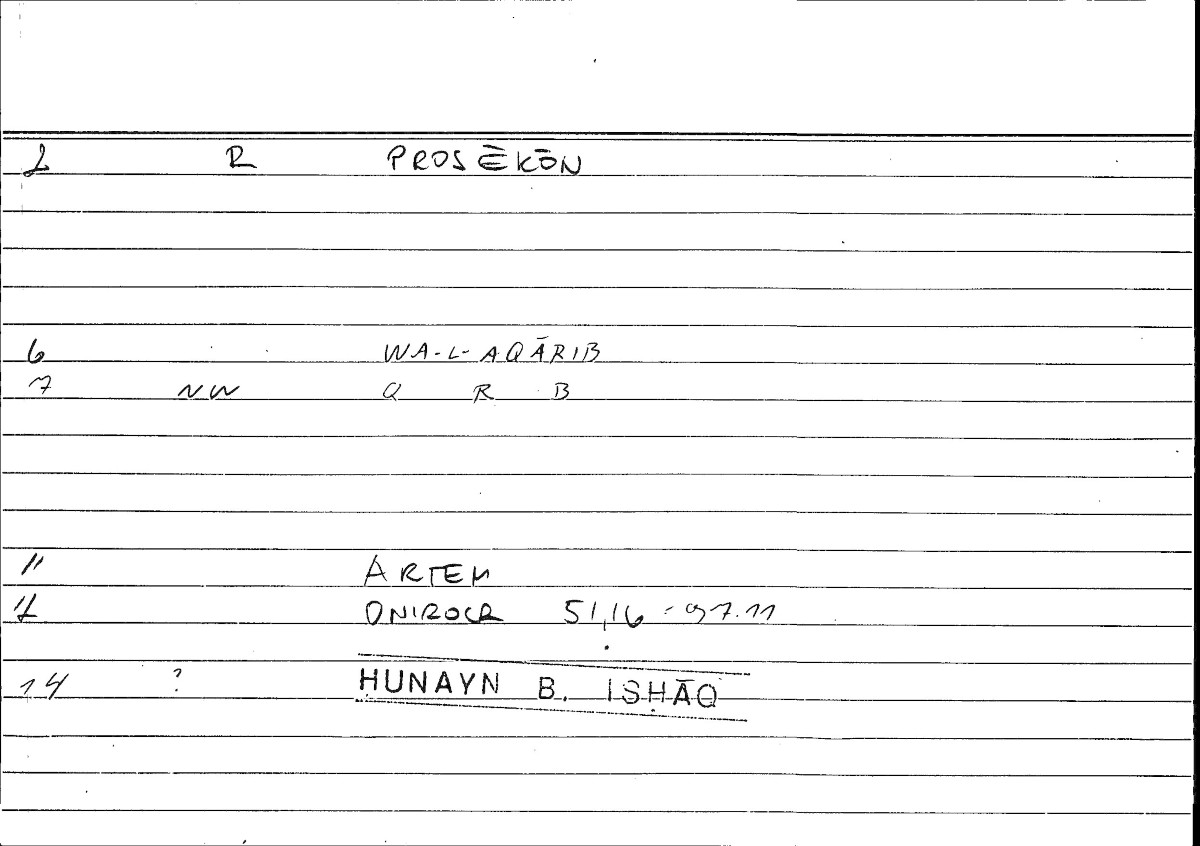 2 R PROSĒKŌN
6 WA-L-AQĀRIB
7 NW Q R B
11 ARTEM
12 ONIROCR 51,16 = 97.11
14 ? ḤUNAYN B. ISḤĀQ